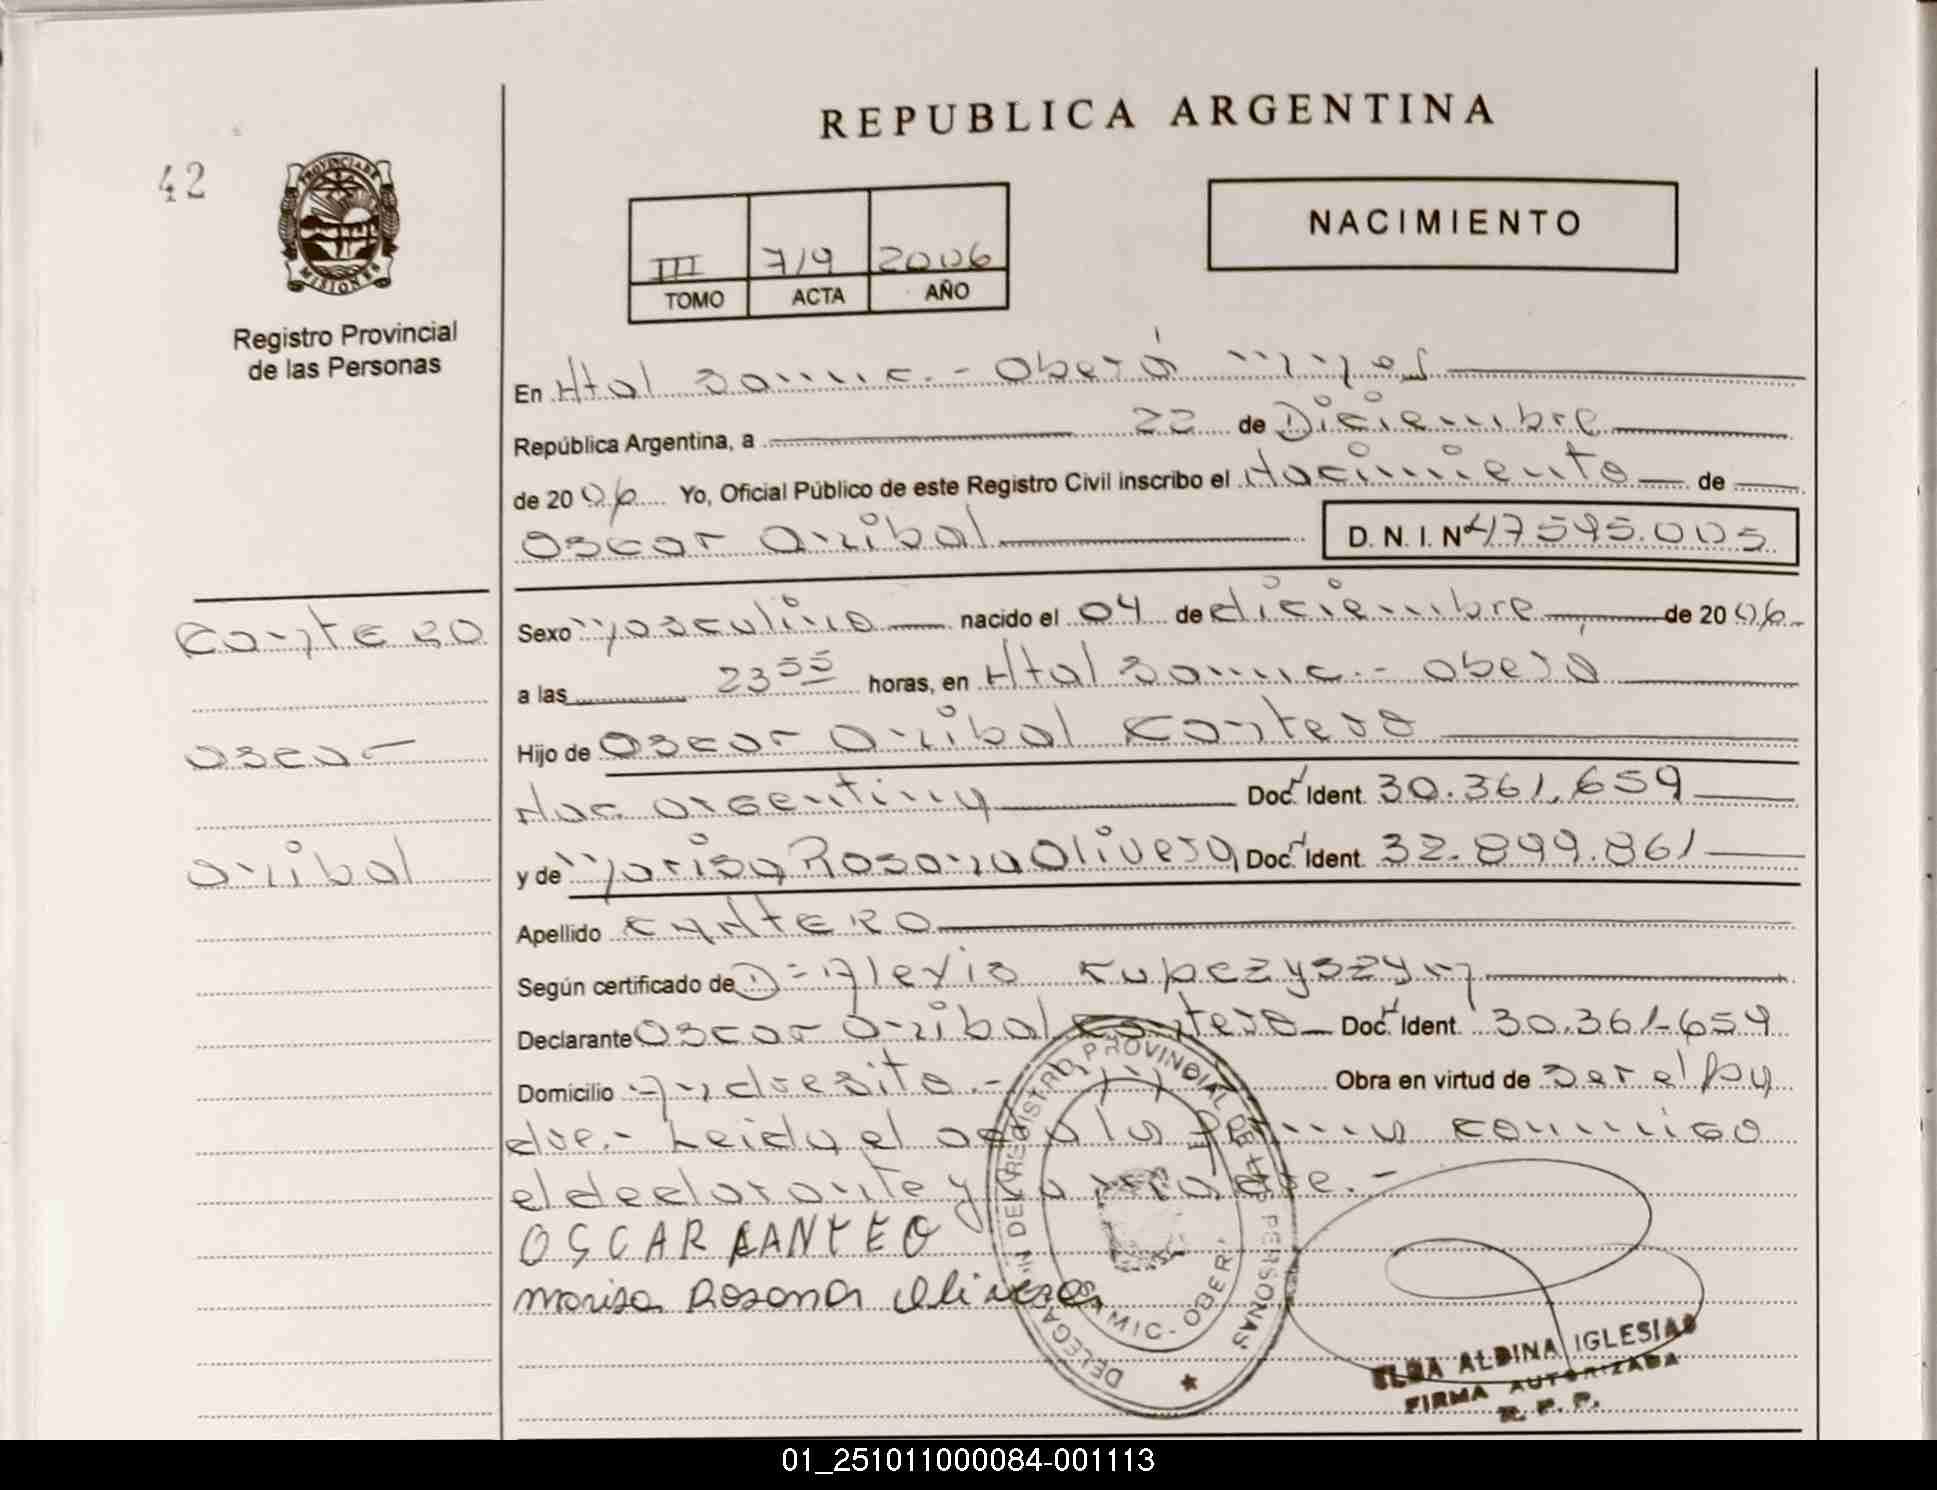 REPUBLICA ARGENTINA
42
PROVINCIA DE MISIONES
Registro Provincial
de las Personas
III 719 2006
TOMO ACTA AÑO
NACIMIENTO
En Htal Samic.- Oberá Mnes
República Argentina, a 22 de Diciembre
de 2006 Yo, Oficial Público de este Registro Civil inscribo el Nacimiento de
Oscar Anibal D. N. I. Nº 47595.005
Cantero
Oscar
Anibal
Sexo Masculino nacido el 04 de diciembre de 2006
a las 23 55 horas, en Htal Samic.- Oberá
Hijo de Oscar Anibal Cantero
Nac. argentina Doc. Ident. 30.361.659
y de Marisa Rosana Olivera Doc. Ident. 32.899.861
Apellido CANTERO
Según certificado de D= Alexis Kupczyszyn
Declarante Oscar Anibal Cantero Doc. Ident. 30.361.659
Domicilio Andresito.- Obra en virtud de Ser el pa
dre.- Leida el acta la firma conmigo
el declarante y la madre.-
OSCAR CANTEO
Marisa Rosana Olivera
DELEGACIÓN DEL REGISTRO PROVINCIAL DE LAS PERSONAS
SAMIC - OBERÁ
ELBA ALDINA IGLESIAS
FIRMA AUTORIZADA
R. P. P.
01_251011000084-001113